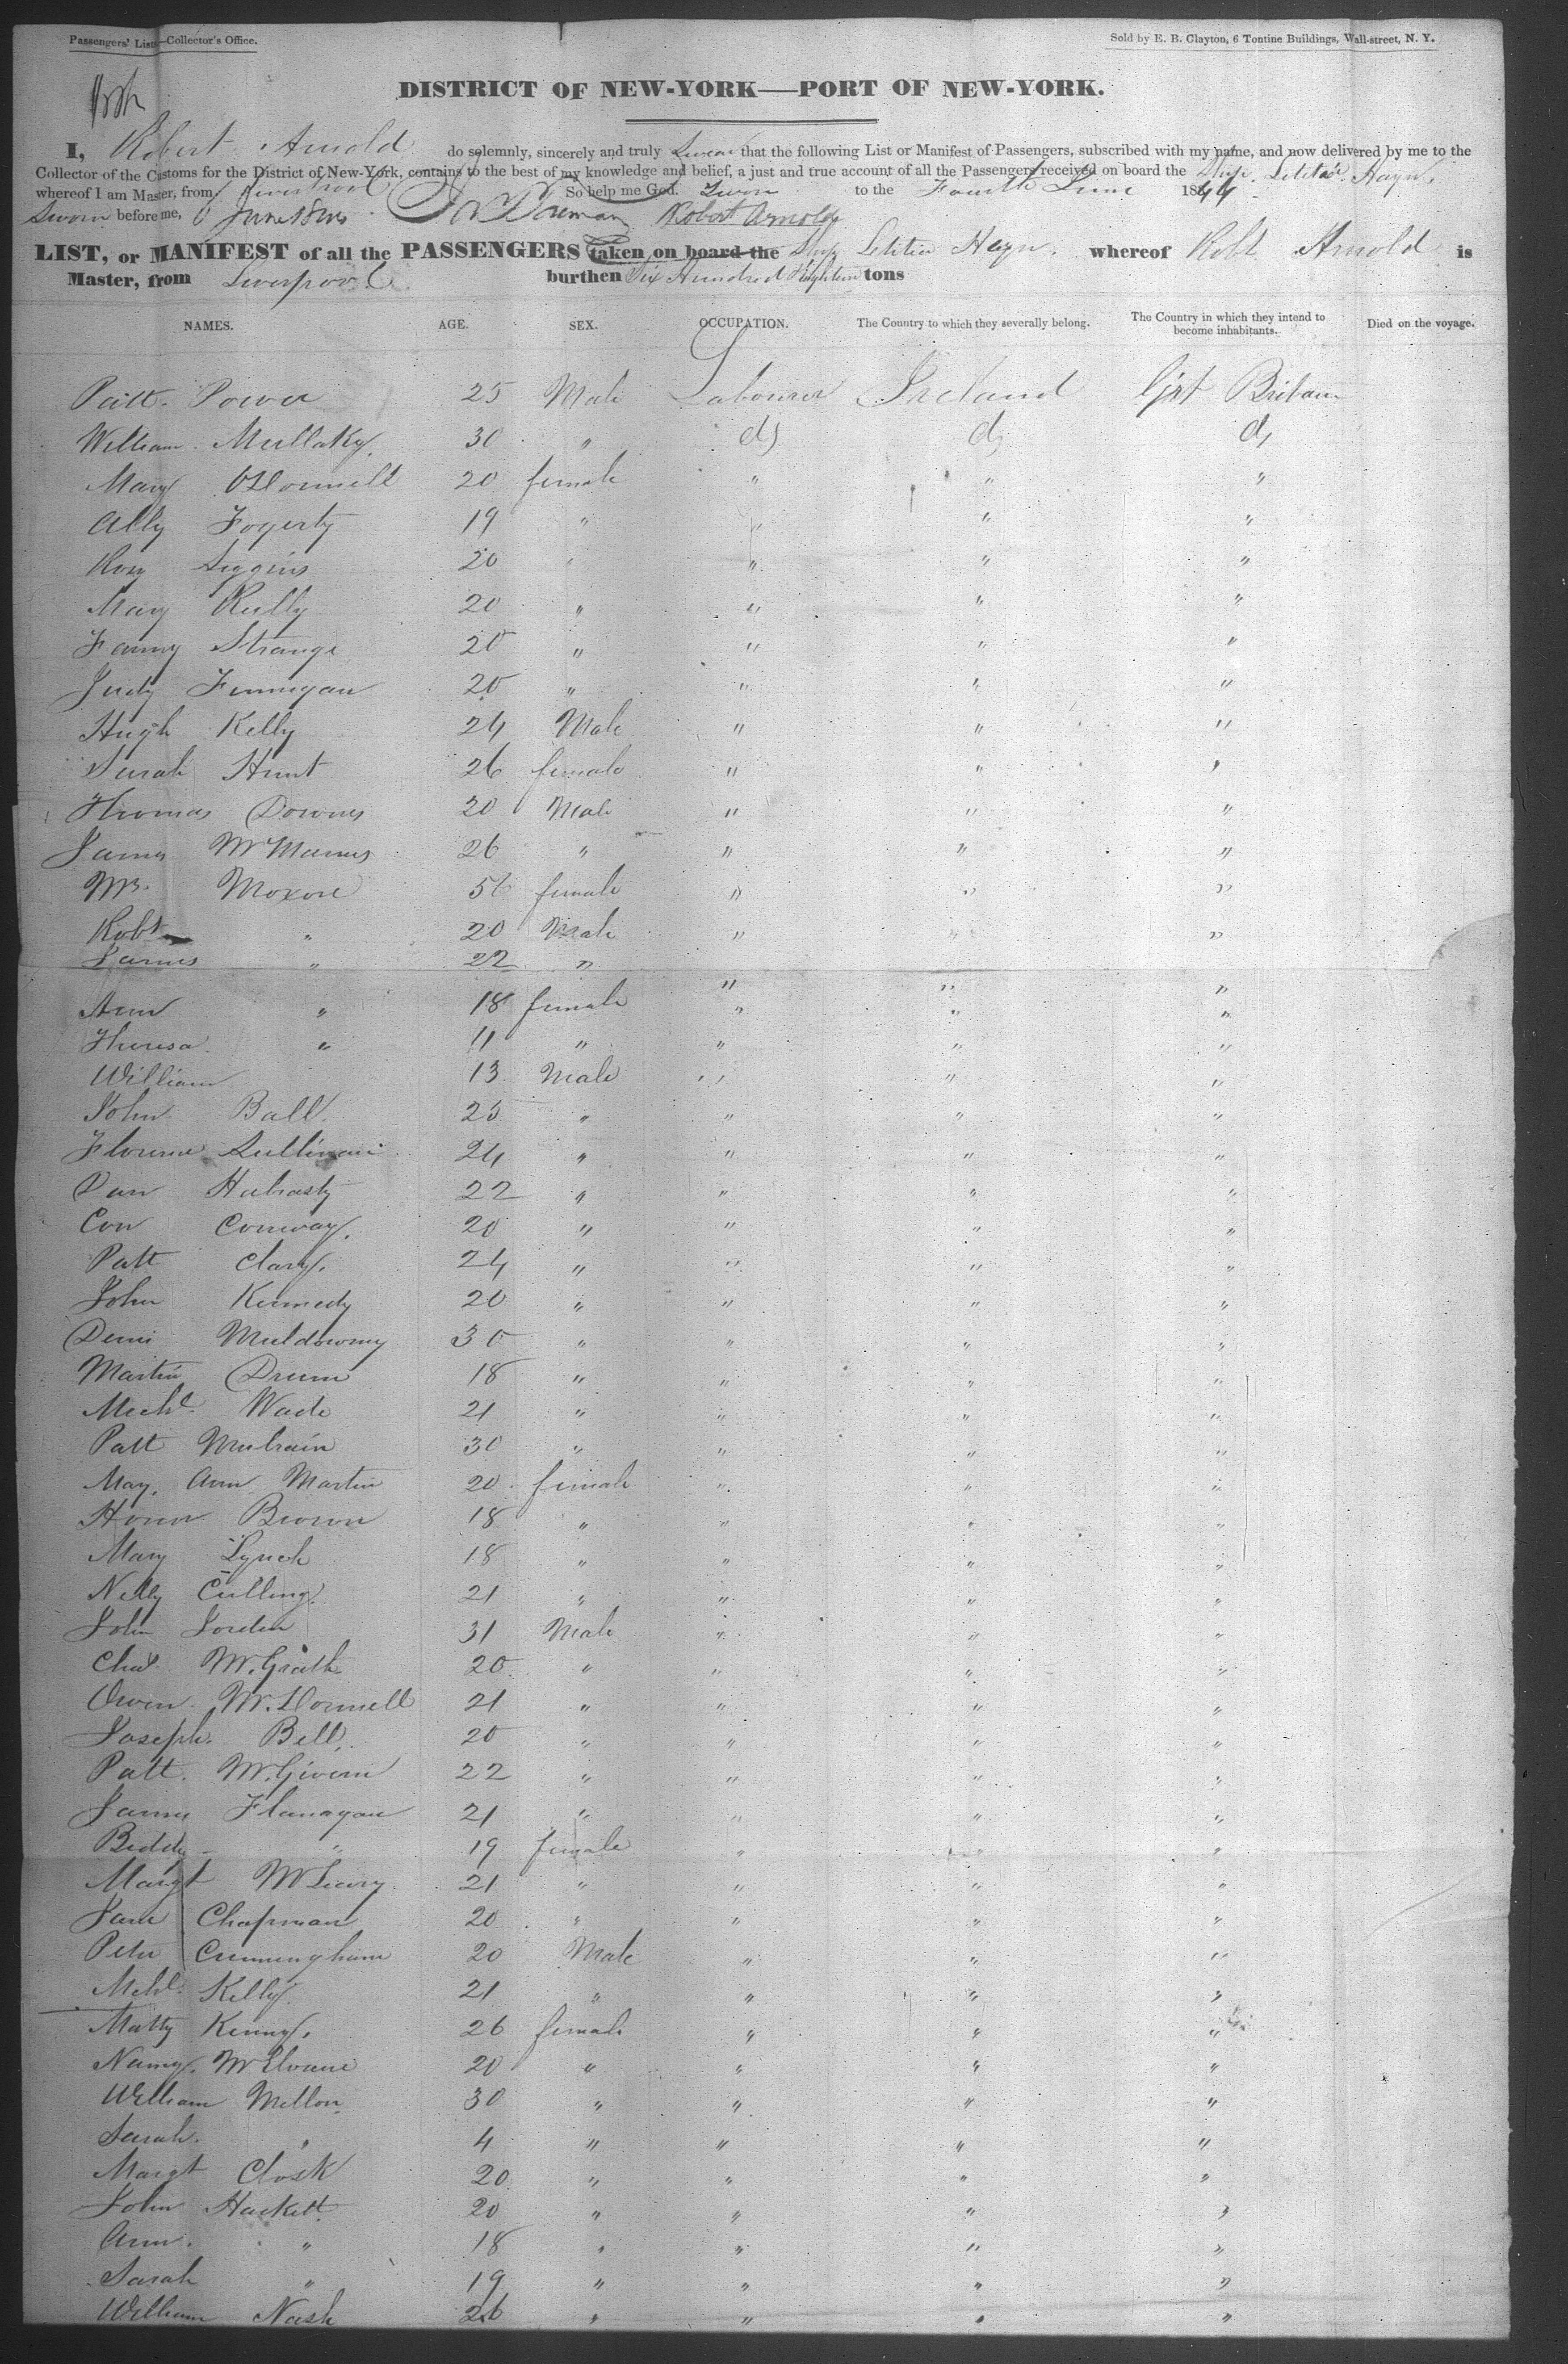 Passengers' List—Collector's Office.
Sold by E. B. Clayton, 6 Tontine Buildings, Wall-street, N. Y.
DISTRICT OF NEW-YORK—PORT OF NEW-YORK.
I, Robert Arnold do solemnly, sincerely and truly Swear that the following List or Manifest of Passengers, subscribed with my name, and now delivered by me to the
Collector of the Customs for the District of New-York, contains to the best of my knowledge and belief, a just and true account of all the Passengers received on board the Ship Letitia Heyn
whereof I am Master, from Liverpool So help me God. Sworn to the Fourth June 1844
Sworn before me, Robert Arnold
LIST, or MANIFEST of all the PASSENGERS taken on board the Ship Letitia Heyn whereof Robt Arnold is
Master, from Liverpool burthen Six Hundred Eighteen tons
NAMES. AGE. SEX. OCCUPATION. The Country to which they severally belong. The Country in which they intend to become inhabitants. Died on the voyage.
Patt. Power 25 Male Labourer Ireland Grt Britain
William Mullaky 30 " do do do
Mary O'Donnell 20 female " " "
Ally Fogerty 19 " " " "
Rosy Siggins 20 " " " "
Mary Reilly 20 " " " "
Fanny Strange 20 " " " "
Judy Finnigan 20 " " " "
Hugh Kelly 24 Male " " "
Sarah Hunt 26 female " " "
Thomas Downes 20 Male " " "
James McManus 26 " " " "
Mrs. Moxon 56 female " " "
Robt " 20 Male " " "
James " 22 " " " "
Ann " 18 female " " "
Theresa " 11 " " " "
William 13 Male " " "
John Ball 25 " " " "
Florence Sullivan 24 " " " "
Dan 22 " " " "
Con Conway. 20 " " " "
Patt Clary. 24 " " " "
John Kennedy 20 " " " "
Muldowney 30 " " " "
Martin Drum 18 " " " "
Michl. Wade 21 " " " "
Patt Mulrain 30 " " " "
May, Ann Martin 20 female " " "
Honor Brown 18 " " " "
Mary Lynch 18 " " " "
Nelly Culling 21 " " " "
John Jorden 31 Male " " "
Chas. McGrath 20 " " " "
Owen McDonnell 21 " " " "
Joseph Bell 20 " " " "
Patt. McGivern 22 " " " "
James Flanagan 21 " " " "
Biddy " 19 female " " "
Margt 21 " " " "
Jane Chapman 20 " " " "
Peter Cunningham 20 Male " " "
Michl. Kelly 21 " " " "
Matty Kenny. 26 female " " "
Nancy 20 " " " "
William Mellon 30 " " " "
Sarah. " 4 " " " "
Margt Clark 20 " " " "
John Hackett 20 " " " "
Ann. " 18 " " " "
Sarah " 19 " " " "
William Nash 26 " " " "